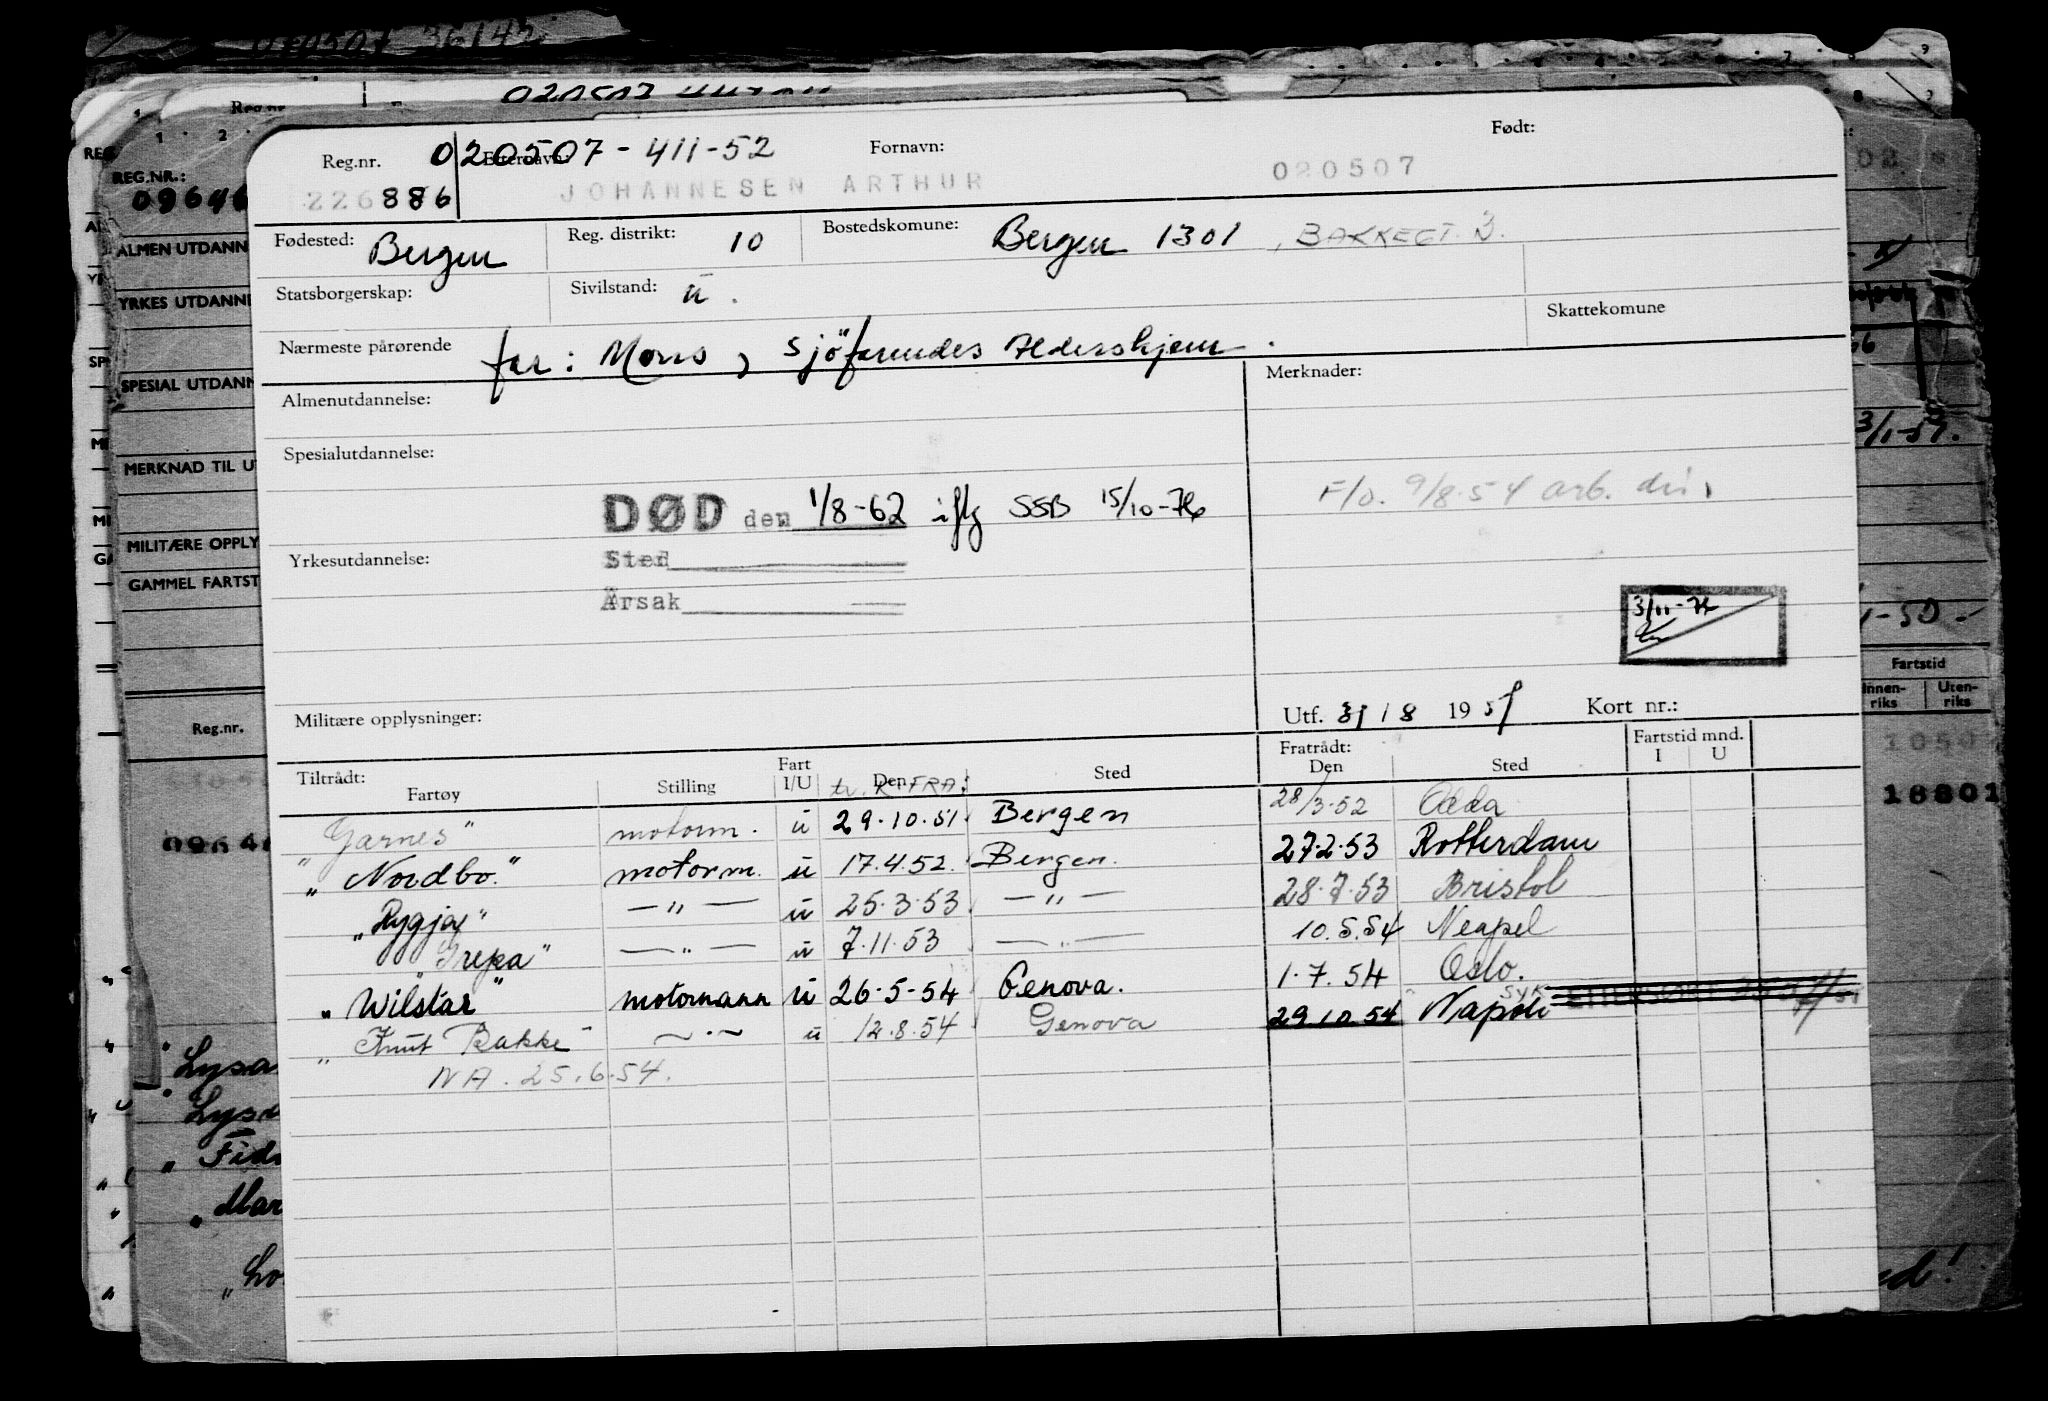 Reg.nr. 020507-411-52 Etternavn: Fornavn: Født:
226886 JOHANNESEN ARTHUR 020507
Fødested: Bergen Reg. distrikt: 10 Bostedskomune: Bergen 1301, BAKKEGT. 3.
Statsborgerskap: Sivilstand: u. Skattekomune
Nærmeste pårørende far: Mons, Sjöfarendes Aldershjem.
Almenutdannelse: Merknader:
Spesialutdannelse:
F/o. 9/8.54 arb. dir.
DØD den 1/8-62 iflg SSB 15/10-76
Yrkesutdannelse: Sted
Årsak
3/11-76
Militære opplysninger: Utf. 31/8 1951 Kort nr.:
Tiltrådt: Fartøy Stilling Fart I/U Den Sted Fratrådt: Den Sted Fartstid mnd. I U
tv. K. FRA:
Garnes" motorm. u 29.10.51 Bergen 28/3.52 Odda
"Nordbo." motorm. u 17.4.52. Bergen. 27.2.53 Rotterdam
"Rygja" — " — u 25.3.53 — " — 28.7.53 Bristol
Grepa" — " — u 7.11.53 — " — 10.5.54 Neapel
"Wilstar" motormann u 26-5-54 Genova. 1.7.54 Oslo.
"Knut Bakke" — " — u 12.8.54 Genova 29.10.54 Napoli SYK
NA. 25.6.54.
REG.NR.:
09646
ALMEN UTDANN
YRKES UTDANNE
SPESIAL UTDANN
MERKNAD TIL U
MILITÆRE OPPLY
GAMMEL FARTST
Reg.nr.
Fartstid
Innen-riks Uten-riks
1050
18801
3/1-59.
-50-
Lysa
Lysa